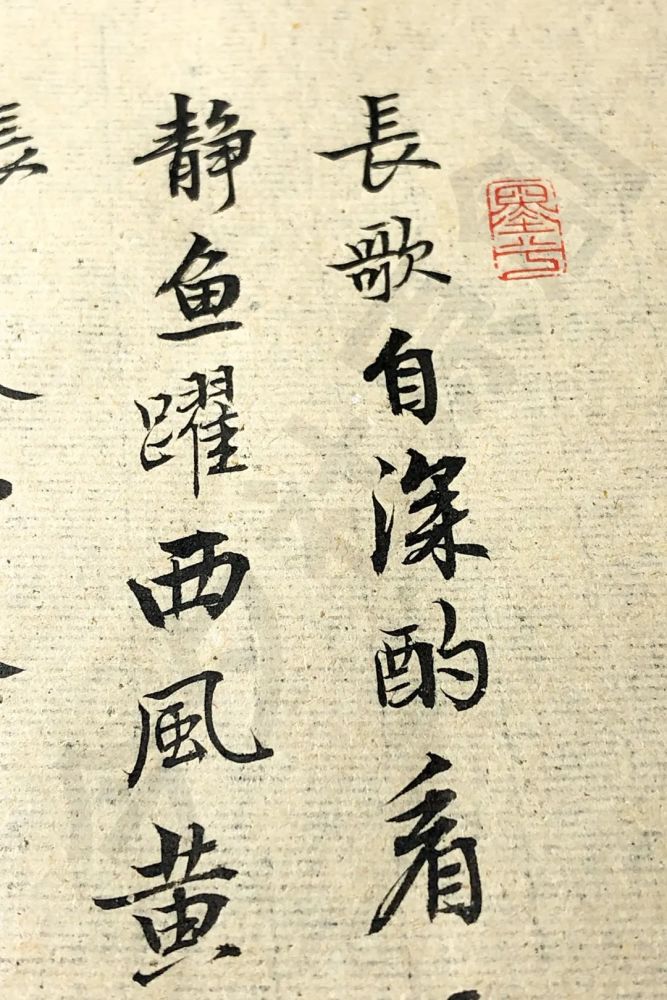 長歌自深酌看
静鱼躍西風黄
長